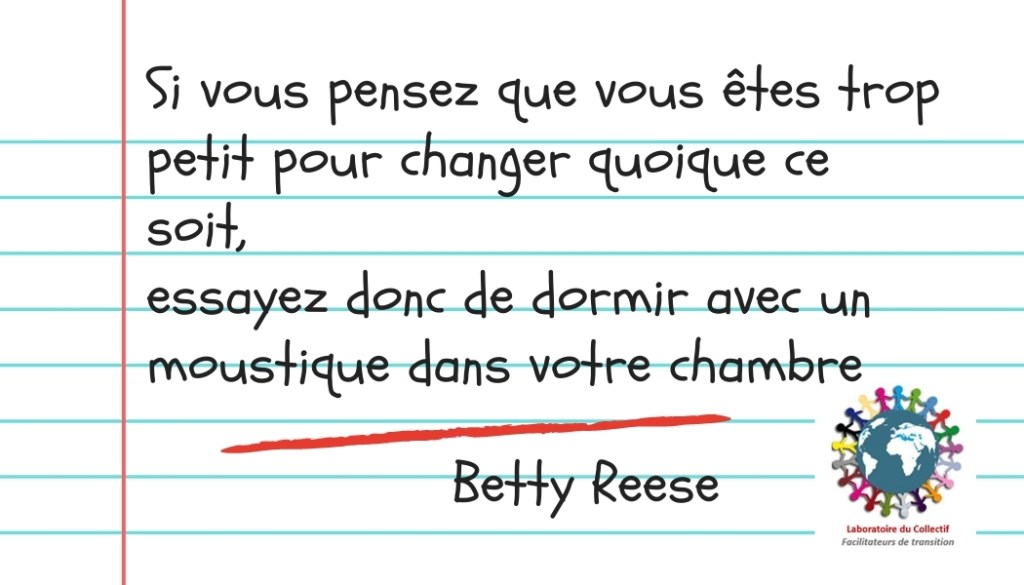 Si vous pensez que vous êtes trop
petit pour changer quoique ce
soit,
essayez donc de dormir avec un
moustique dans votre chambre
Betty Reese
Laboratoire du Collectif
Facilitateurs de transition